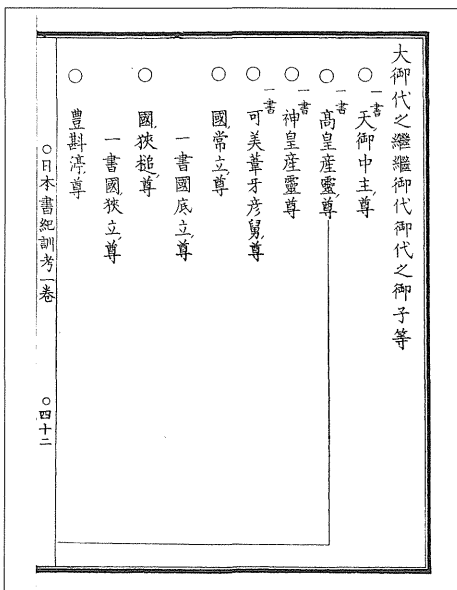 大御代之繼繼御代御代之御子等
○一書天御中主尊
○一書高皇産靈尊
○一書神皇産靈尊
○一書可美葦牙彦舅尊
○國常立尊
一書國底立尊
○國狹槌尊
一書國狹立尊
○豐斟渟尊
○日本書紀訓考一卷
○四十二